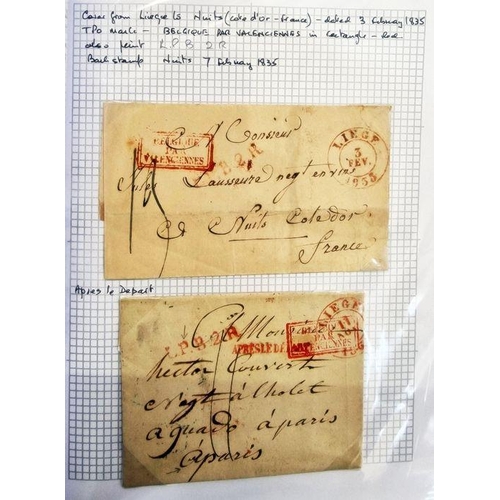 Cover from Liege to Nuits (cote d'or - France) - dated 3 February 1835
TPO mark - BELGIQUE PAR VALENCIENNES in rectangle - red
also faint L.P.B. 2R
Backstamp Nuits 7 February 1835
BELGIQUE
PAR
VALENCIENNES
L.P.B.2.R
LIEGE
3
FEV.
1835
Monsieur
Jules Lausseure negt en vins
à Nuits Cote dor
france
Apres le Depart
L.P.B.2.R
APRÈS LE DÉPART
PAR
VALENCIENNES
LIEGE
11
Monsieur
hector Couvert
Negt à lhotel
aguado à paris
à paris